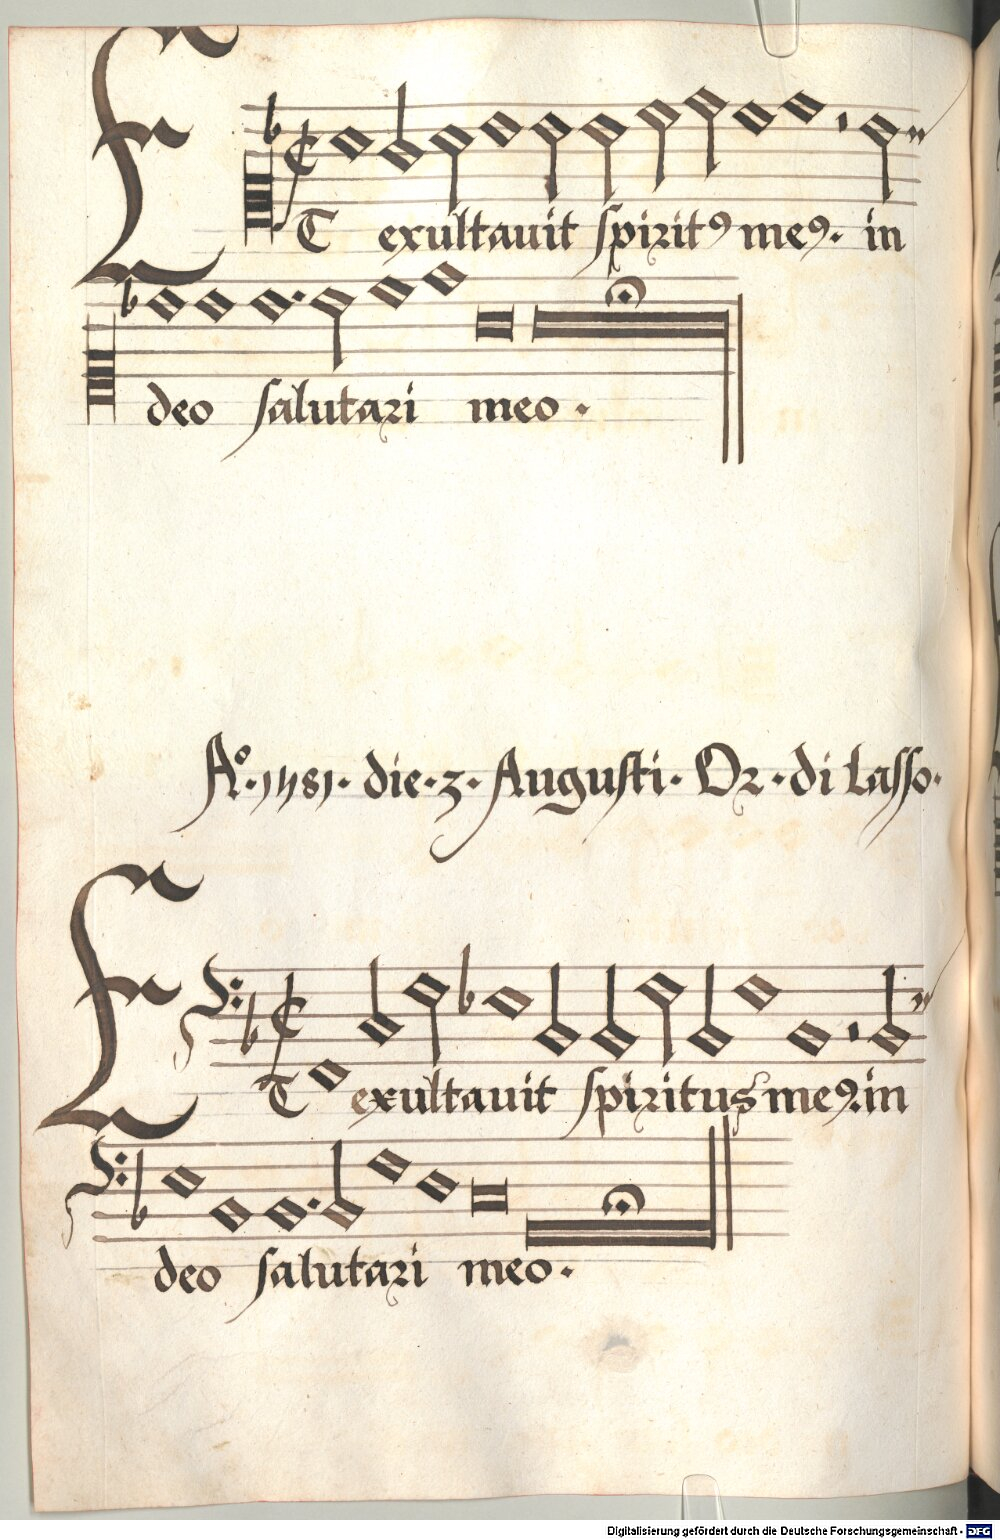 ET exultauit spiritꝰ meꝰ. in
deo salutari meo.
Aº. 1581. die. 3. Augusti. Or. di lasso.
ET exultauit spiritus meꝰ. in
deo salutari meo.
Digitalisierung gefördert durch die Deutsche Forschungsgemeinschaft - DFG